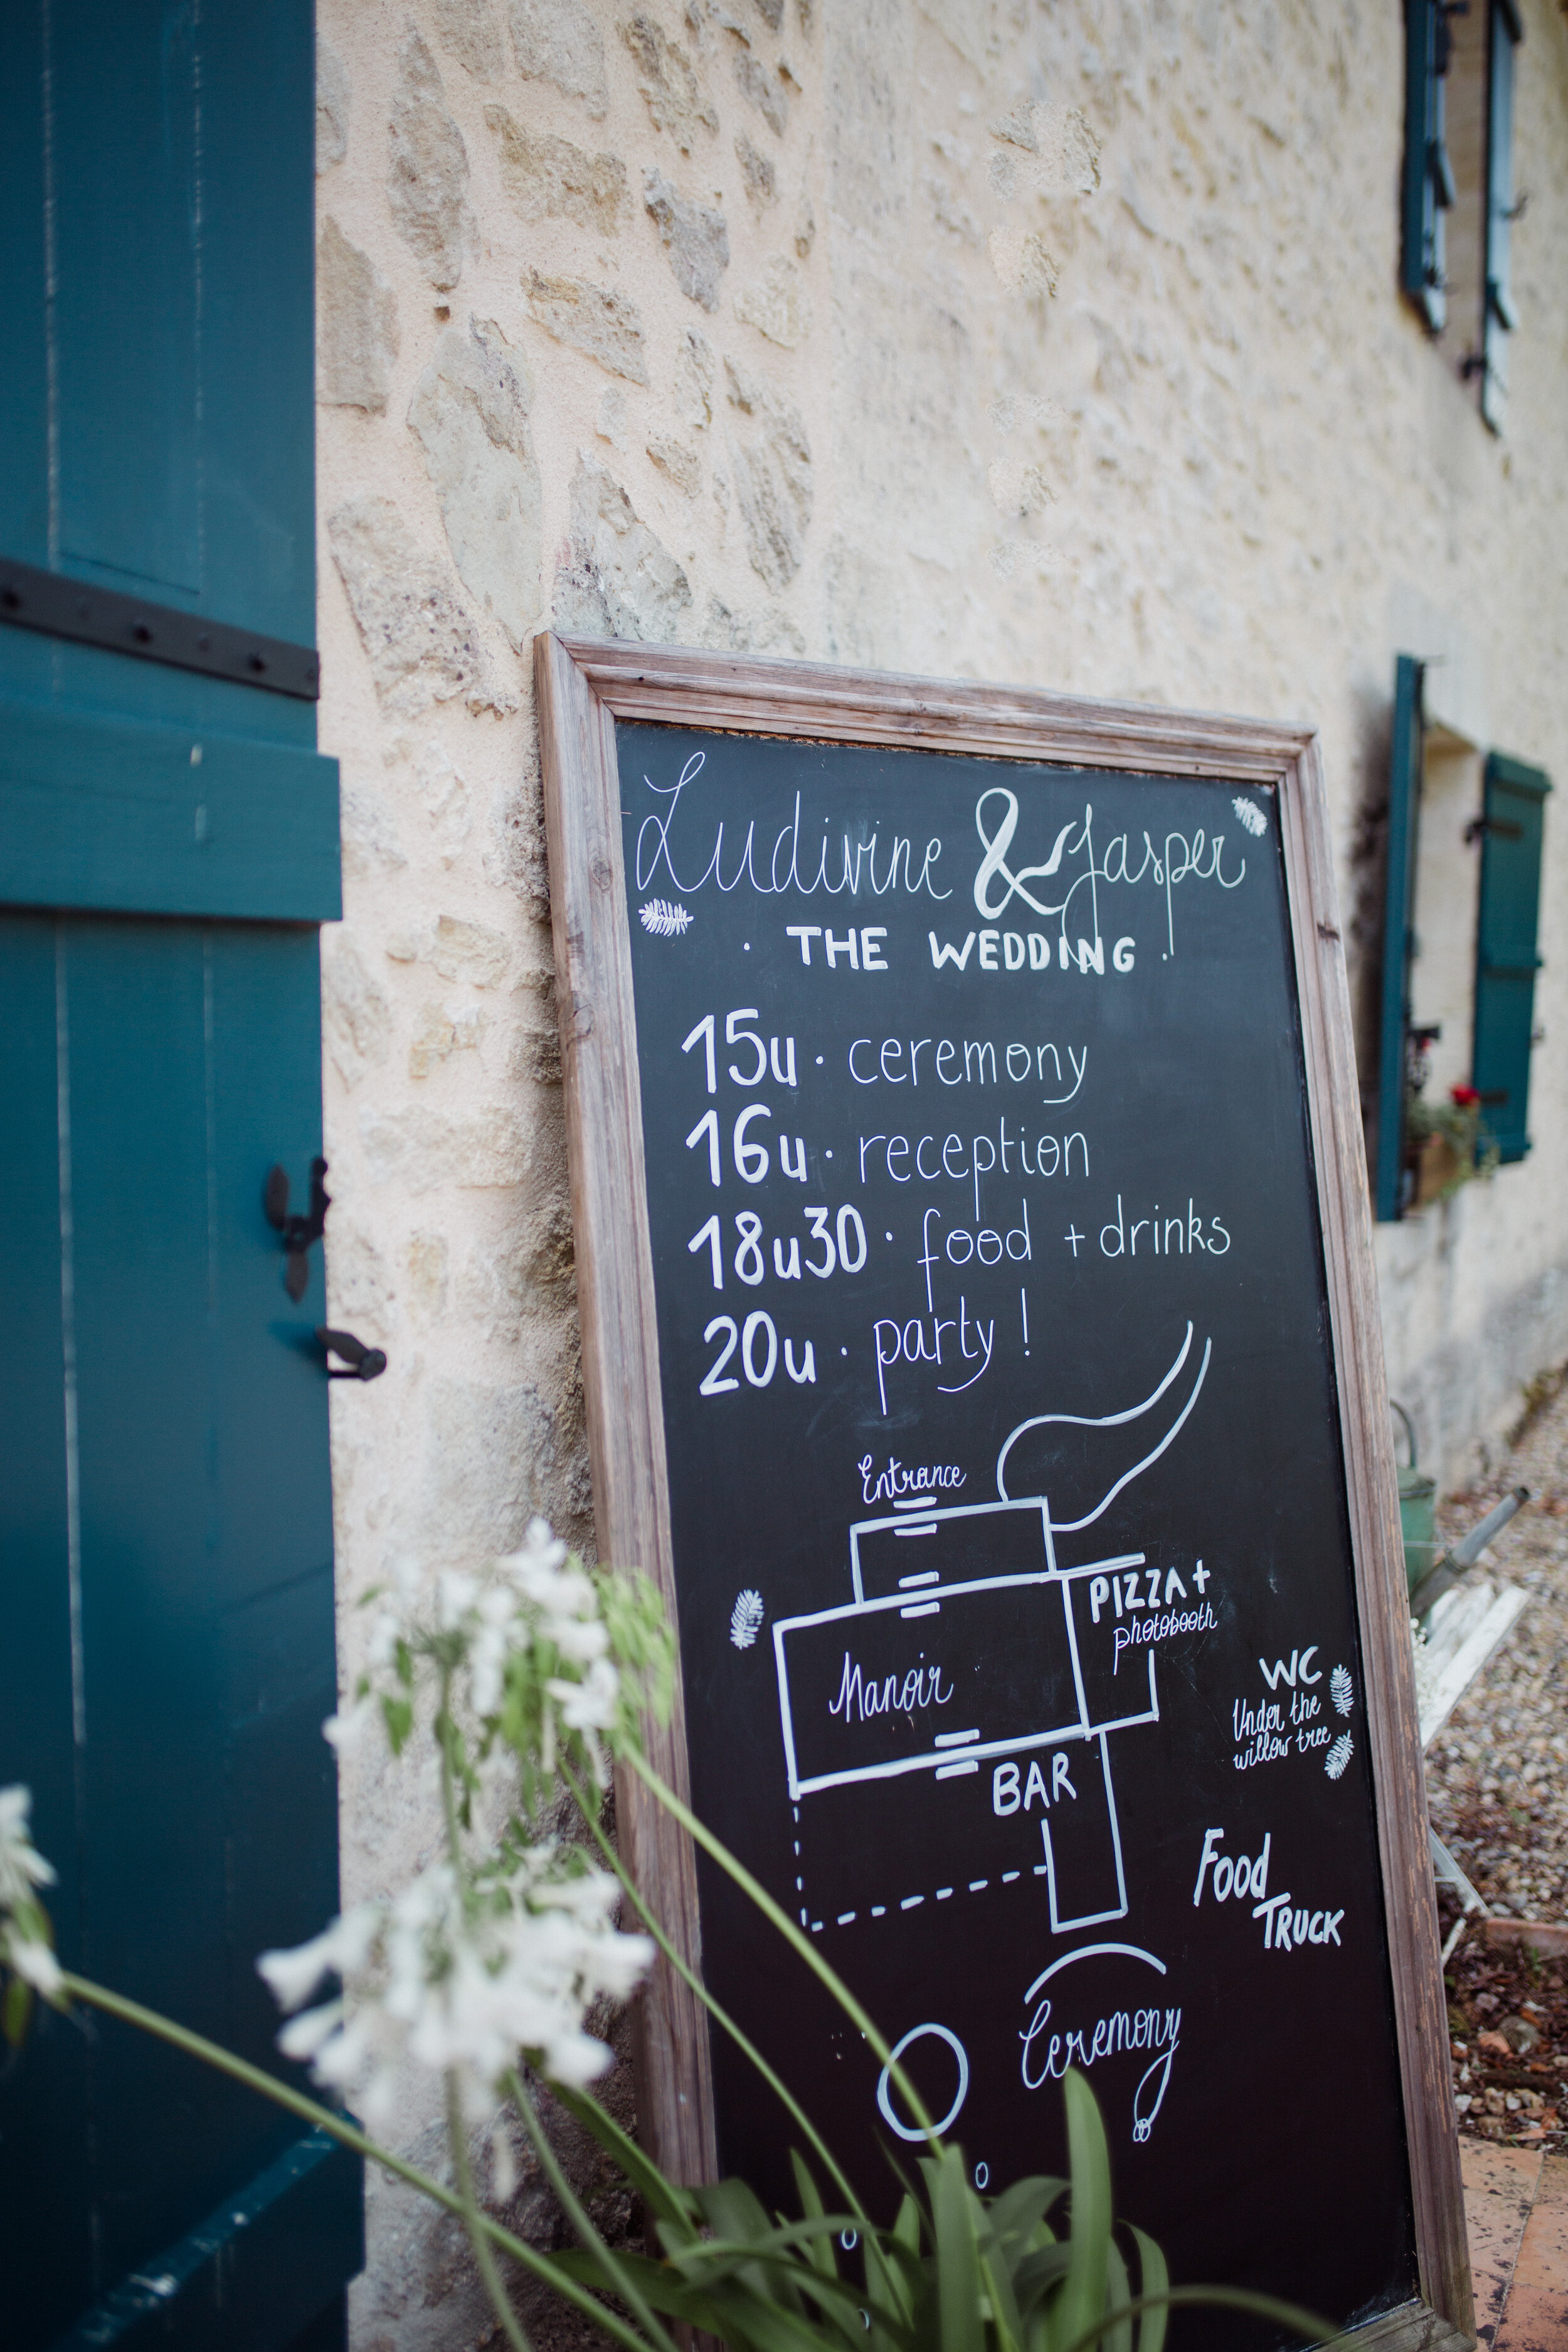 Ludivine & Jasper
· THE WEDDING ·
15u · ceremony
16u · reception
18u30 · food + drinks
20u · party !
Entrance
PIZZA +
photobooth
Manoir
WC
Under the
willow tree
BAR
Food
TRUCK
Ceremony